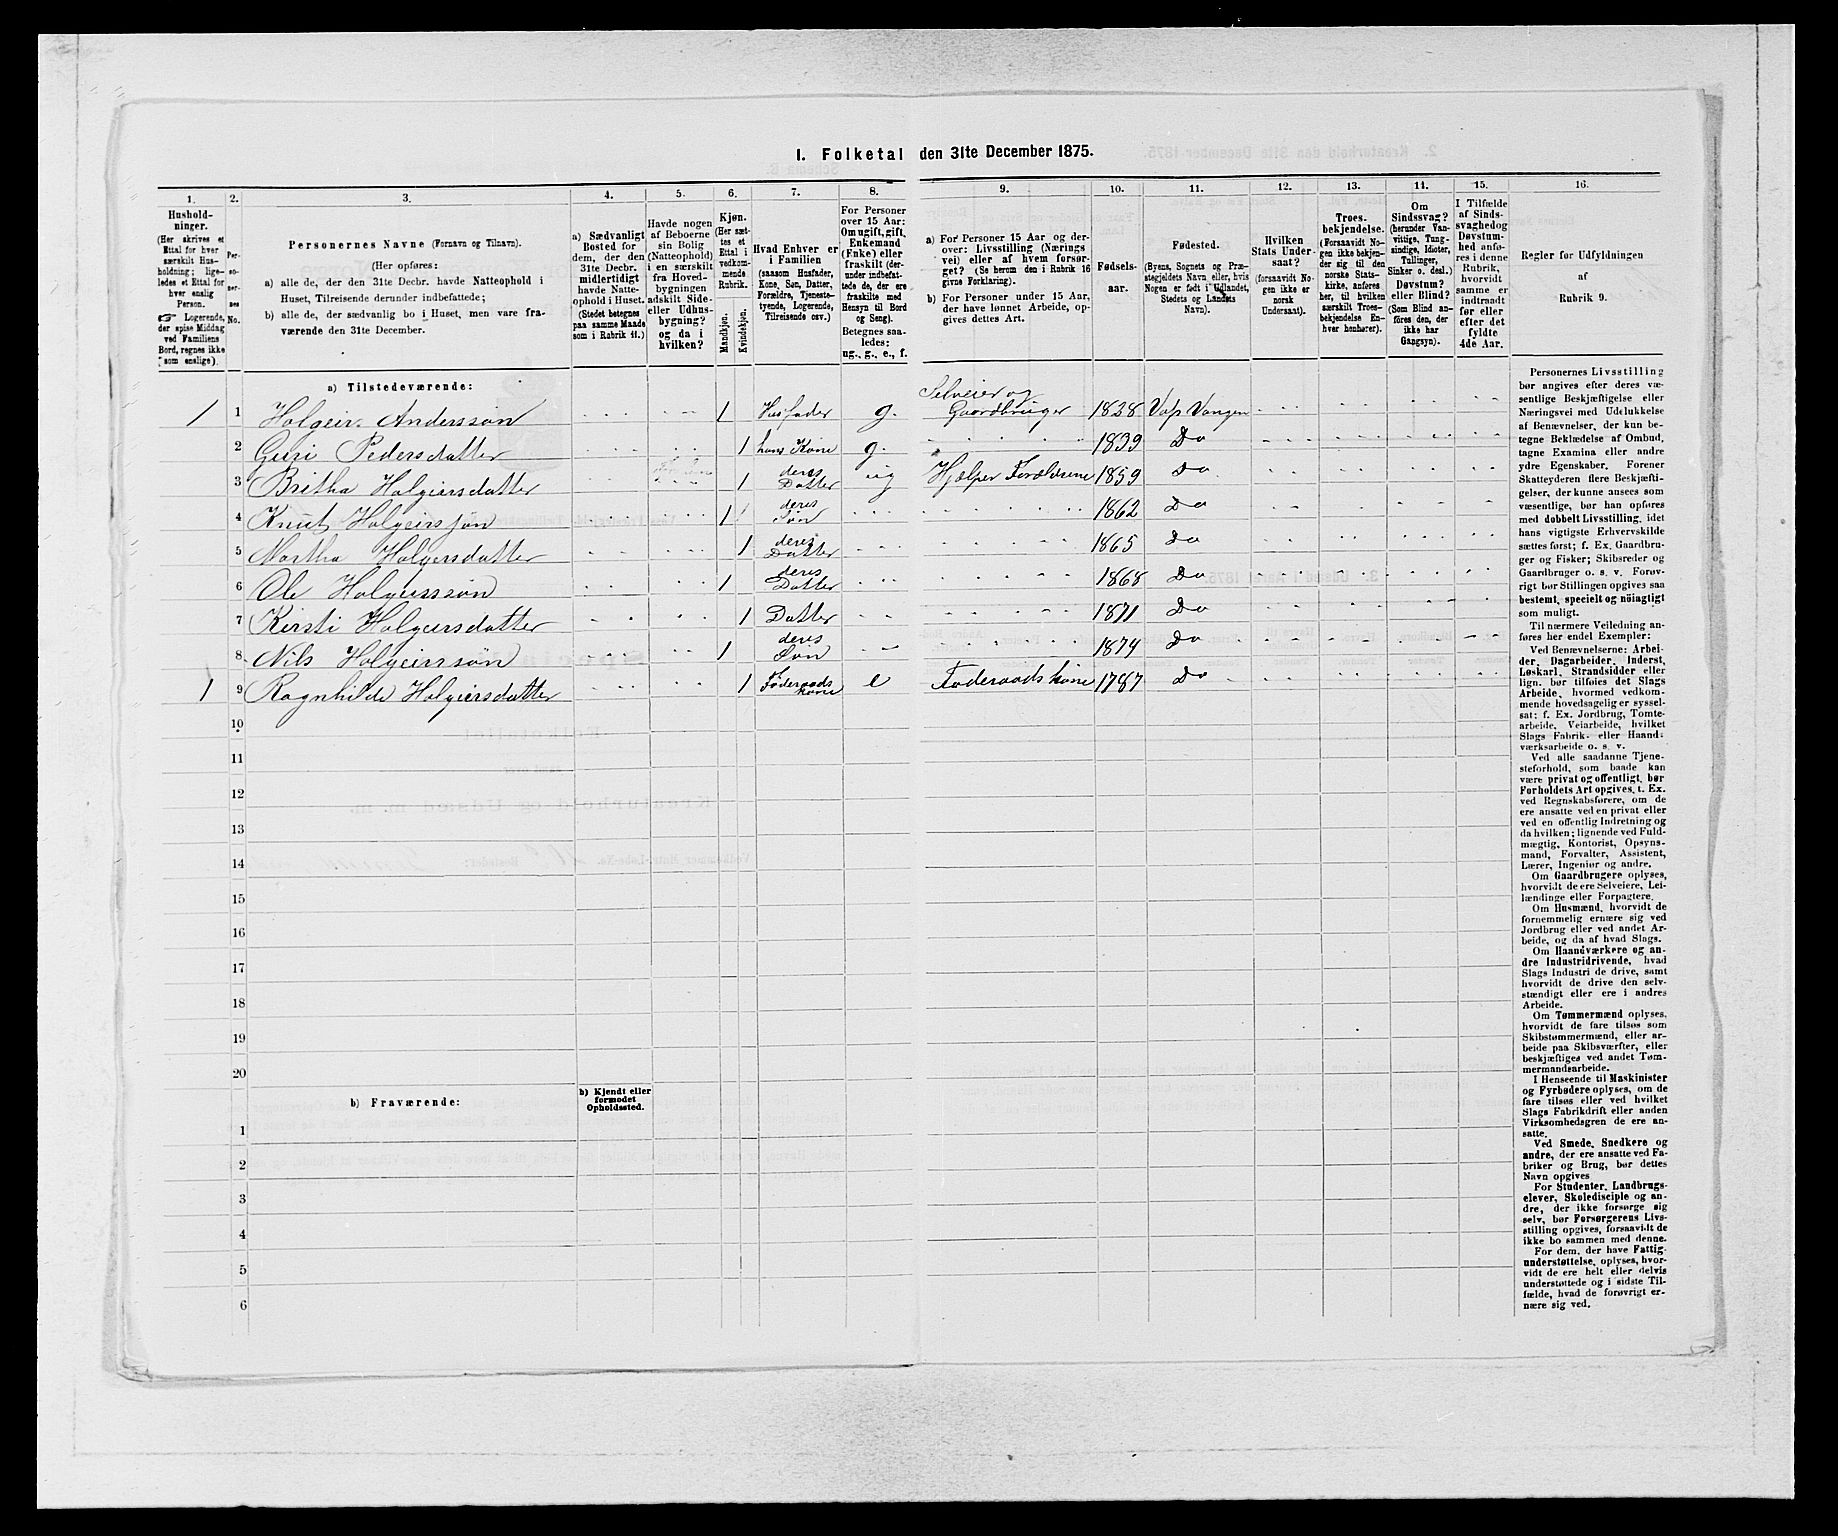 1. Folketal den 31te December 1875.
1.
Hushold-
ninger.
(Her skrives et
Ettal for hver
særskilt Hus-
holdning; lige-
ledes et Ettal for
hver enslig
Person.
☞ Logerende,
der spise Middag
ved Familiens
Bord, regnes ikke
som enslige).
2.
Per-
so-
ner-
nes
No.
3.
Personernes Navne (Fornavn og Tilnavn).
(Her opføres:
a) alle de, der den 31te Decbr. havde Natteophold i
Huset, Tilreisende derunder indbefattede;
b) alle de, der sædvanlig bo i Huset, men vare fra-
værende den 31te December.
4.
a) Sædvanligt
Bosted for
dem, der den
31te Decbr.
midlertidigt
havde Natte-
ophold i Huset.
(Stedet betegnes
paa samme Maade
som i Rubrik 11.)
5.
Havde nogen
af Beboerne
sin Bolig
(Natteophold)
i en særskilt
fra Hoved-
bygningen
adskilt Side-
eller Udhus-
bygning?
og da i
hvilken?
6.
Kjøn.
(Her sæt-
tes et
Ettal i
vedkom-
mende
Rubrik.
Mandkjøn.
Kvindekjøn.
7.
Hvad Enhver er
i Familien
(saasom Husfader,
Kone, Søn, Datter,
Forældre, Tjeneste-
tyende, Logerende,
Tilreisende osv.)
8.
For Personer
over 15 Aar:
Om ugift, gift,
Enkemand
(Enke) eller
fraskilt (der-
under indbefat-
tede de, der ere
fraskilte med
Hensyn til Bord
og Seng).
Betegnes saa-
ledes:
ug., g., e., f.
9.
a) For Personer 15 Aar og der-
over: Livsstilling (Nærings
vei) eller af hvem forsør-
get? (Se herom den i Rubrik 16
givne Forklaring).
b) For Personer under 15 Aar,
der have lønnet Arbeide, op-
gives dettes Art.
10.
Fødsels-
aar.
11.
Fødested.
(Byens, Sognets og Præ-
stegjeldets Navn eller, hvis
Nogen er født i Udlandet,
Stedets og Landets
Navn).
12.
Hvilken
Stats Under-
saat?
(forsaavidt No-
gen ikke er
norsk
Undersaat).
13.
Troes-
bekjendelse.
(Forsaavidt No-
gen ikke bekjen-
der sig til den
norske Stats-
kirke, anføres
her, til hvilken
særskilt Troes-
bekjendelse En-
hver henhører).
14.
Om
Sindssvag?
(herunder Van-
vittige, Tung-
sindige, Idioter,
Tullinger,
Sinker o. desl.)
Døvstum?
eller Blind?
(Som Blind an-
føres den, der
ikke har
Gangsyn).
15.
I Tilfælde
af Sinds-
svaghedog
Døvstum-
hed anfø-
res i denne
Rubrik,
hvorvidt
samme er
indtraadt
før eller
efter det
fyldte
4de Aar.
16.
Regler for Udfyldningen
af
Rubrik 9.
a) Tilstedeværende:
1 1 Holgeir Anderssøn 1 Husfader g. Selveier og Gaardbruger 1828 Vofs Vangen
2 Guri Pedersdatter 1 hans Kone g. 1839 Do
3 Britha Holgeirsdatter 1 deres Datter ug Hjelper Forældrene 1859 Do
4 Knut Holgeirssøn 1 deres Søn 1862 Do
5 Martha Holgersdatter 1 deres Datter 1865 Do
6 Ole Holgeirssøn 1 deres Datter 1868 Do
7 Kirsti Holgeirsdatter 1 Datter 1871 Do
8 Nils Holgeirrsøn 1 deres Søn 1874 Do
1 9 Ragnhilde Holgeirsdatter 1 Føderaads kone e Føderaads kone 1787 Do
10
11
12
13
14
15
16
17
18
19
20
b) Fraværende:
b) Kjendt eller
formodet
Opholdssted.
1
2
3
4
5
6
Personernes Livsstilling
bør angives efter deres væ-
sentlige Beskjæftigelse eller
Næringsvei med Udelukkelse
af Benævnelser, der kun be-
tegne Beklædelse af Ombud,
tagne Examina eller andre
ydre Egenskaber. Forener
Skatteyderen flere Beskjæfti-
gelser, der kunne ansees som
væsentlige, bør han opføres
med dobbelt Livsstilling, idet
hans vigtigste Erhvervskilde
sættes først; f. Ex. Gaardbru-
ger og Fisker; Skibsreder og
Gaardbruger o. s. v. Forøv-
rigt bør Stillingen opgives saa
bestemt, specielt og nöiagtigt
som muligt.
Til nærmere Veiledning an-
føres her endel Exempler:
Ved Benævnelserne: Arbei-
der, Dagarbeider, Inderst,
Løskarl, Strandsidder eller
lign. bør tilføies det Slags
Arbeide, hvormed vedkom-
mende hovedsagelig er syssel-
sat; f. Ex. Jordbrug, Tomte-
arbeide, Veiarbeide, hvilket
Slags Fabrik- eller Haand-
værksarbeide o. s. v.
Ved alle saadanne Tjene-
steforhold, som baade kan
være privat og offentligt, bør
Forholdets Art opgives, t. Ex.
ved Regnskabsførere, om de
ere ansatte ved en privat eller
ved en offentlig Indretning og
da hvilken; lignende ved Fuld-
mægtig, Kontorist, Opsyns-
mand, Forvalter, Assistent,
Lærer, Ingeniør og andre.
Om Gaardbrugere oplyses,
hvorvidt de ere Selveiere, Lei-
lændinge eller Forpagtere.
Om Husmænd, hvorvidt de
fornemmelig ernære sig ved
Jordbrug eller ved andet Ar-
beide, og da af hvad Slags.
Om Haandværkere og an-
dre Industridrivende, hvad
Slags Industri de drive, samt
hvorvidt de drive den selv-
stændigt eller ere i andres
Arbeide.
Om Tømmermænd oplyses,
hvorvidt de fare tilsøs som
Skibstømmermænd, eller ar-
beide paa Skibsværfter, eller
beskjæftiges ved andet Tøm-
mermandsarbeide.
I Henseende til Maskinister
og Fyrbødere oplyses, om de
fare tilsøs eller ved hvilket
Slags Fabrikdrift eller anden
Virksomhedsgren de ere an-
satte.
Ved Smede, Snedkere og
andre, der ere ansatte ved Fa-
briker og Brug, bør dettes
Navn opgives
For Studenter, Landbrugs-
elever, Skoledisciple og an-
dre, der ikke forsørge sig
selv, bør Forsørgerens Livs-
stilling opgives, forsaavidt de
ikke bo sammen med denne.
For dem, der have Fattig-
understøttelse, oplyses, hvor-
vidt de ere helt eller delvis
understøttede og i sidste Til-
fælde, hvad de forøvrigt er-
nære sig ved.